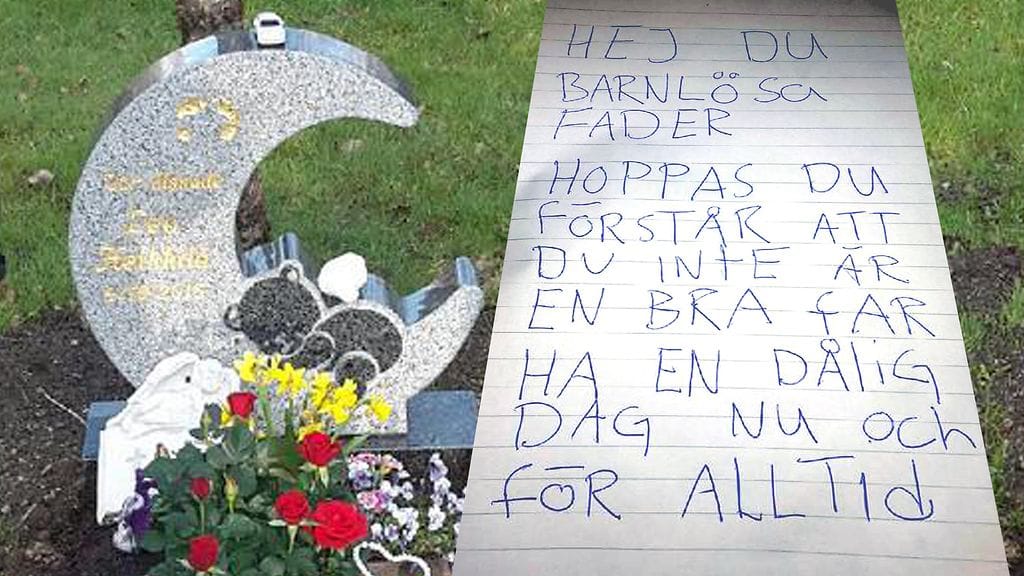 HEJ DU
BARNLÖSA
FADER
HOPPAS DU
FÖRSTÅR ATT
DU INTE ÄR
EN BRA FAR
HA EN DÅLIG
DAG NU och
FÖR ALLTId